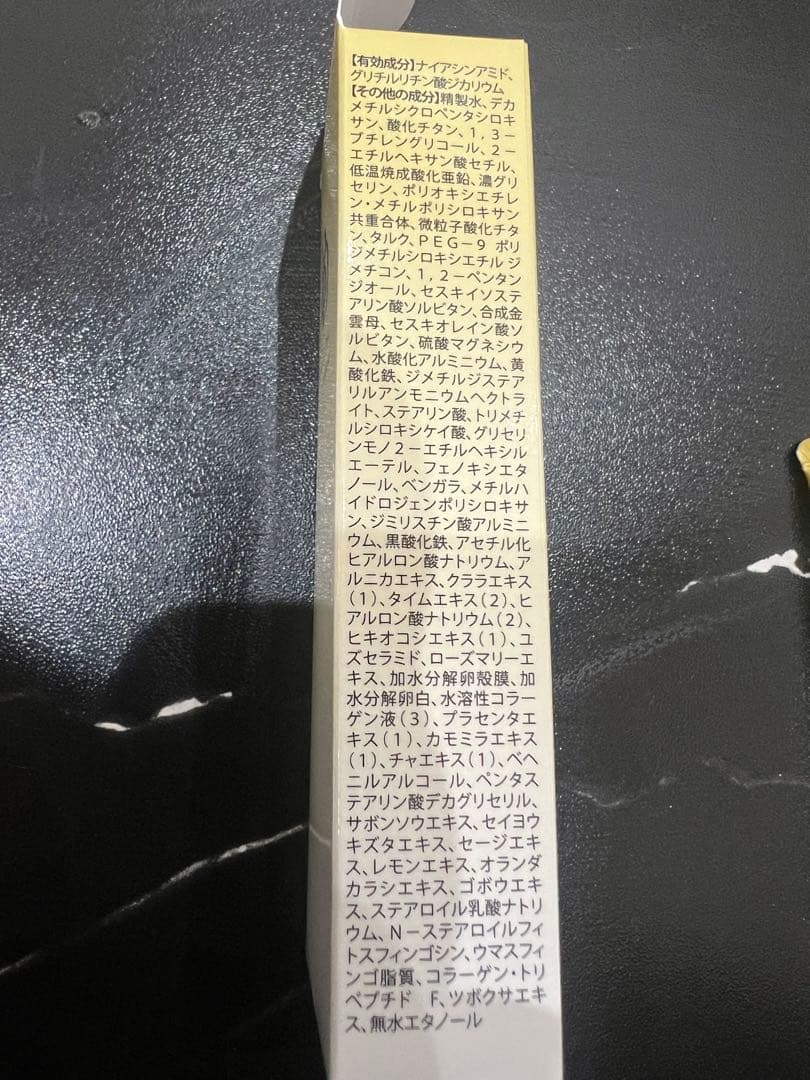 【有効成分】ナイアシンアミド、
グリチルリチン酸ジカリウム
【その他の成分】精製水、デカ
メチルシクロペンタシロキ
サン、酸化チタン、1,3－
ブチレングリコール、2－
エチルヘキサン酸セチル、
低温焼成酸化亜鉛、濃グリ
セリン、ポリオキシエチレ
ン・メチルポリシロキサン
共重合体、微粒子酸化チタ
ン、タルク、PEG－9 ポリ
ジメチルシロキシエチル ジ
メチコン、1,2－ペンタン
ジオール、セスキイソステ
アリン酸ソルビタン、合成金
雲母、セスキオレイン酸ソ
ルビタン、硫酸マグネシウ
ム、水酸化アルミニウム、黄
酸化鉄、ジメチルジステア
リルアンモニウムヘクトラ
イト、ステアリン酸、トリメチ
ルシロキシケイ酸、グリセリ
ンモノ2－エチルヘキシル
エーテル、フェノキシエタ
ノール、ベンガラ、メチルハ
イドロジェンポリシロキサ
ン、ジミリスチン酸アルミニ
ウム、黒酸化鉄、アセチル化
ヒアルロン酸ナトリウム、ア
ルニカエキス、クララエキス
(1)、タイムエキス(2)、ヒ
アルロン酸ナトリウム(2)、
ヒキオコシエキス(1)、ユ
ズセラミド、ローズマリーエ
キス、加水分解卵殻膜、加
水分解卵白、水溶性コラー
ゲン液(3)、プラセンタエ
キス(1)、カモミラエキス
(1)、チャエキス(1)、ベヘ
ニルアルコール、ペンタス
テアリン酸デカグリセリル、
サボンソウエキス、セイヨウ
キズタエキス、セージエキ
ス、レモンエキス、オランダ
カラシエキス、ゴボウエキ
ス、ステアロイル乳酸ナトリ
ウム、N－ステアロイルフィ
トスフィンゴシン、ウマスフィ
ンゴ脂質、コラーゲン・トリ
ペプチド F、ツボクサエキ
ス、無水エタノール